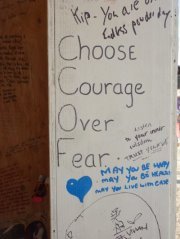 Kip. You are on
endless powder day.
Choose
Courage
Over
Fear.
Listen
to your inner
wisdom
TRUST YOURSELF
MAY YOU BE HAPPY
MAY YOU BE HEALTHY
MAY YOU LIVE WITH EASE